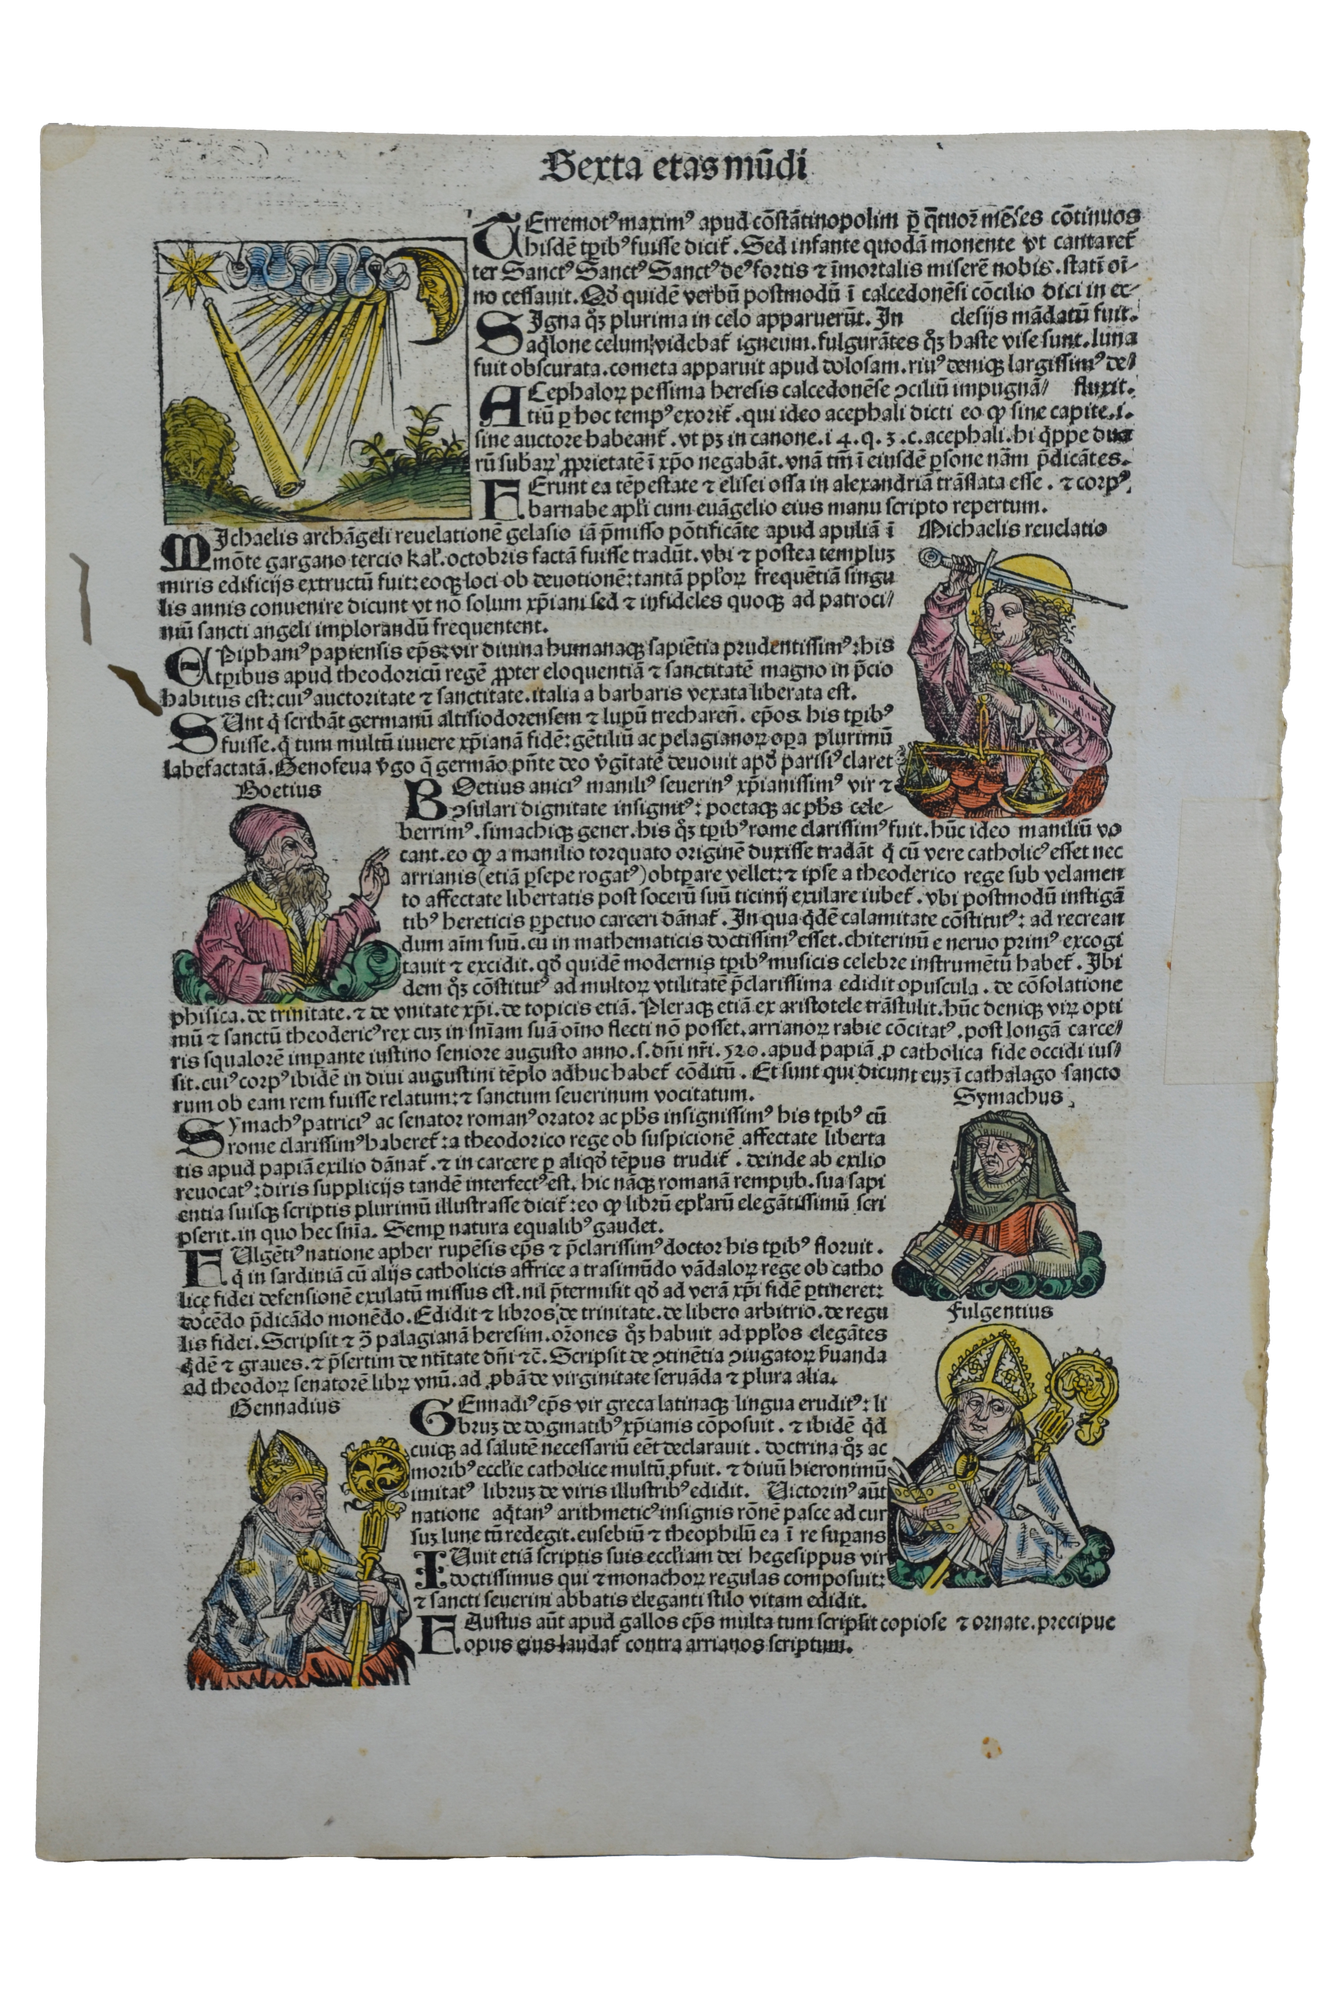 Sexta etas mūdi
TErremotꝰ maximꝰ apud cōstātinopolim ꝑ q̄tuor mēses cōtinuos
hisdē tꝑibꝰ fuisse dicit̄. Sed infante quodā monente vt cantaret̄
ter Sanctꝰ Sanctꝰ Sanctꝰ deꝰ fortis ⁊ īmortalis miserē nobis. statī oī-
no cessauit. Qđ quidē verbū postmodū ī calcedonēsi cōcilio dici in ec-
clesijs mādatū fuit.
SIgna q̄ꝫ plurima in celo apparuerūt. In
aq̄lone celum videbat̄ igneum. fulgurātes q̄ꝫ haste vise sunt. luna
fuit obscurata. cometa apparuit apud dolosam. riuꝰ deniqꝫ largissimꝰ de/
fluxit.
ACephaloꝝ pessima heresis calcedonēse ↄciliū impugnā/
tiū ꝑ hoc tempꝰ exorit̄. qui ideo acephali dicti eo ꝙ sine capite .i.
sine auctore habeant̄. vt pꝫ in canone. i 4. q. 3. c. acephali. hi q̄ppe dua
rū subaꝝ ꝓprietatē ī xp̄o negabāt. vnā tm̄ ī eiusdē ꝑsone nām p̄dicātes.
FErunt ea tēpestate ⁊ elisei ossa in alexandriā trāslata esse. ⁊ corpꝰ
barnabe apl̄i cum euāgelio eius manu scripto repertum.
Michaelis reuelatio
MJchaelis archāgeli reuelationē gelasio iā p̄misso pōtificāte apud apuliā ī
mōte gargano tercio kal̄. octobris factā fuisse tradūt. vbi ⁊ postea templuꝫ
miris edificijs extructū fuit: eoqꝫ loci ob deuotionē: tantā pp̄loꝝ frequētiā singu
lis annis conuenire dicunt vt nō solum xp̄iani sed ⁊ infideles quoqꝫ ad patroci/
niū sancti angeli implorandū frequentent.
EPiphaniꝰ papiensis ep̄s: vir diuina humanaqꝫ sapiētia prudentissimꝰ: his
tꝑibus apud theodoricū regē ꝓpter eloquentiā ⁊ sanctitatē magno in p̄cio
habitus est: cuiꝰ auctoritate ⁊ sanctitate. italia a barbaris vexata liberata est.
SUnt q̄ scribāt germanū altisiodorensem ⁊ lupū trecharen̄. ep̄os his tꝑibꝰ
fuisse. q̄ tum multū iuuere xp̄ianā fidē: gētiliū ac pelagianoꝝ oꝑa plurimū
labefactatā. Genofeua v̄go q̄ germāo p̄nte deo v̄gītatē deuouit apđ parisiꝰ claret
Boetius
BOetius aniciꝰ maniliꝰ seuerinꝰ xp̄ianissimꝰ vir ⁊
ↄsulari dignitate insignitꝰ: poetaqꝫ ac ph̄s cele-
berrimꝰ. simachiqꝫ gener. his q̄ꝫ tꝑibꝰ rome clarissimꝰ fuit. hūc ideo maniliū vo
cant. eo ꝙ a manilio torquato originē duxisse tradāt q̄ cū vere catholicꝰ esset nec
arrianis (etiā ꝑsepe rogatꝰ) obtꝑare vellet: ⁊ ipse a theoderico rege sub velamen
to affectate libertatis post socerū suū ticinij exulare iubet̄. vbi postmodū instigā
tibꝰ hereticis ꝑpetuo carceri dānat̄. In qua q̄dē calamitate cōstitutꝰ: ad recrean
dum aīm suū. cū in mathematicis doctissimꝰ esset. chiterinū e neruo primꝰ excogi
tauit ⁊ excidit. qđ quidē modernis tꝑibꝰ musicis celebre instrumētū habet̄. Ibi
dem q̄ꝫ cōstitutꝰ ad multoꝝ vtilitatē p̄clarissima edidit opuscula. de cōsolatione
phisica. de trinitate. ⁊ de vnitate xp̄i. de topicis etiā. Pleraqꝫ etiā ex aristotele trāstulit. hūc deniqꝫ viꝝ opti
mū ⁊ sanctū theodericꝰ rex cuꝫ in sn̄iam suā oīno flecti nō posset. arrianoꝝ rabie cōcitatꝰ. post longā carce/
ris squalorē imꝑante iustino seniore augusto anno .s. dn̄i nr̄i. 520. apud papiā ꝓ catholica fide occidi ius/
sit. cuiꝰ corpꝰ ibidē in diui augustini tēplo adhuc habet̄ cōditū. Et sunt qui dicunt euꝫ ī cathalago sancto
rum ob eam rem fuisse relatum: ⁊ sanctum seuerinum vocitatum.
Symachus
SYmachꝰ patriciꝰ ac senator romanꝰ orator ac ph̄s insignissimꝰ his tꝑibꝰ cū
rome clarissimꝰ haberet̄: a theodorico rege ob suspicionē affectate liberta
tis apud papiā exilio dānat̄. ⁊ in carcere ꝑ aliqđ tēpus trudit̄. deinde ab exilio
reuocatꝰ: diris supplicijs tandē interfectꝰ est. hic nāqꝫ romanā rempub. sua sapi
entia suisqꝫ scriptis plurimū illustrasse dicit̄: eo ꝙ librū epl̄arū elegātissimū scri
pserit. in quo hec sn̄ia. Semꝑ natura equalibꝰ gaudet.
Fulgentius
FUlgētiꝰ natione apher rupēsis ep̄s ⁊ p̄clarissimꝰ doctor his tꝑibꝰ floruit.
q̄ in sardiniā cū alijs catholicis affrice a trasimūdo vādaloꝝ rege ob catho
lice fidei defensionē exulatū missus est. nil p̄termisit qđ ad verā xp̄i fidē ꝑtineret:
docēdo p̄dicādo monēdo. Edidit ⁊ libros de trinitate. de libero arbitrio. de regu
lis fidei. Scripsit ⁊ ↄ̄ palagianā heresim. or̄ones q̄ꝫ habuit ad pp̄los elegātes
q̄dē ⁊ graues. ⁊ p̄sertim de ntītate dn̄i ⁊c̄. Scripsit de ↄtinētia ↄiugatoꝝ ẜuanda
ad theodoꝝ senatorē libꝝ vnū. ad ꝓbā de virginitate seruāda ⁊ plura alia.
Gennadius
GEnnadiꝰ ep̄s vir greca latinaqꝫ lingua eruditꝰ: li
bruꝫ de dogmatibꝰ xp̄ianis cōposuit. ⁊ ibidē q̄d
cuiqꝫ ad salutē necessariū eēt declarauit. doctrina q̄ꝫ ac
moribꝰ eccl̄ie catholice multū ꝓfuit. ⁊ diuū hieronimū
imitatꝰ libruꝫ de viris illustribꝰ edidit. Uictorinꝰ aūt
natione aq̄tanꝰ arithmeticꝰ insignis rōnē pasce ad cur
suꝫ lune tū redegit. eusebiū ⁊ theophilū ea ī re suꝑans
IUuit etiā scriptis suis eccl̄iam dei hegesippus vir
doctissimus qui ⁊ monachoꝝ regulas composuit:
⁊ sancti seuerini abbatis eleganti stilo vitam edidit.
FAustus aūt apud gallos ep̄s multa tum scripsit copiose ⁊ ornate. precipue
opus eius laudat̄ contra arrianos scriptum.